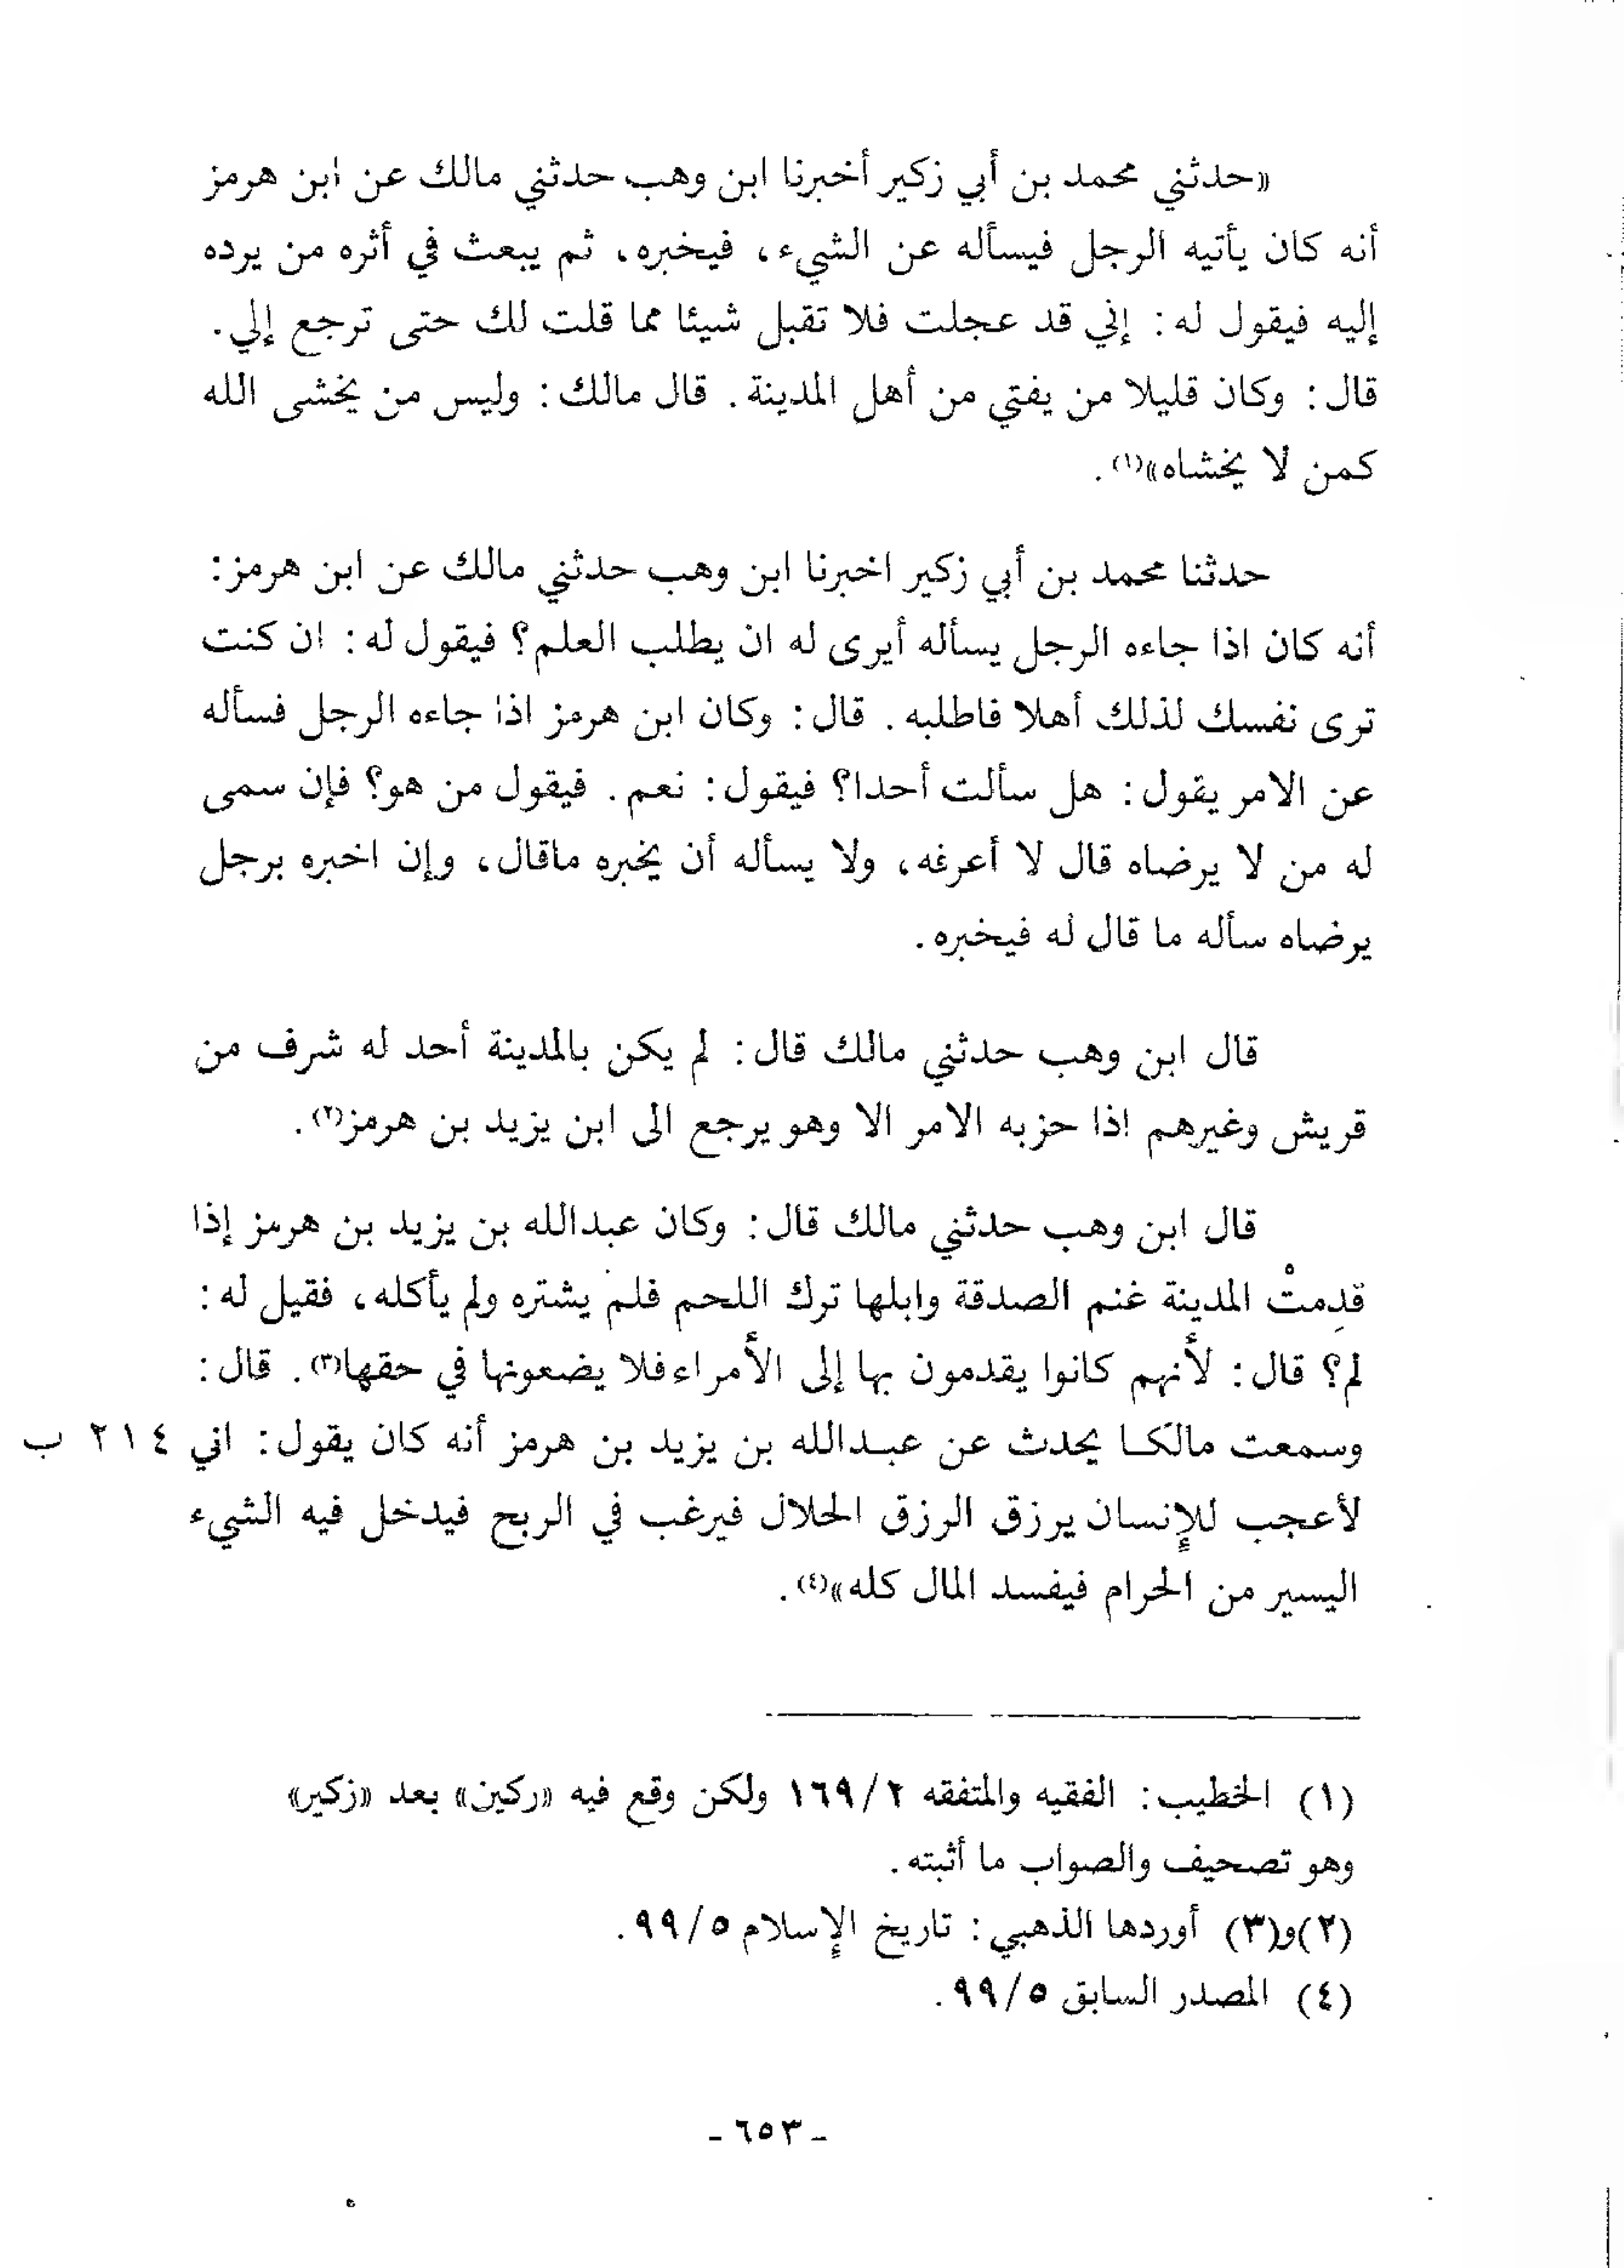 «حدثني محمد بن أبي زكير أخبرنا ابن وهب حدثني مالك عن ابن هرمز
أنه كان يأتيه الرجل فيسأله عن الشيء، فيخبره، ثم يبعث في أثره من يرده
إليه فيقول له: إني قد عجلت فلا تقبل شيئا مما قلت لك حتى ترجع إلي.
قال: وكان قليلا من يفتي من أهل المدينة. قال مالك: وليس من يخشى الله
كمن لا يخشاه»(١).
حدثنا محمد بن أبي زكير اخبرنا ابن وهب حدثني مالك عن ابن هرمز:
أنه كان اذا جاءه الرجل يسأله أيرى له ان يطلب العلم؟ فيقول له: ان كنت
ترى نفسك لذلك أهلا فاطلبه. قال: وكان ابن هرمز اذا جاءه الرجل فسأله
عن الامر يقول: هل سألت أحدا؟ فيقول: نعم. فيقول من هو؟ فإن سمى
له من لا يرضاه قال لا أعرفه، ولا يسأله أن يخبره ماقال، وإن اخبره برجل
يرضاه سأله ما قال له فيخبره.
قال ابن وهب حدثني مالك قال: لم يكن بالمدينة أحد له شرف من
قريش وغيرهم اذا حزبه الامر الا وهو يرجع الى ابن يزيد بن هرمز(٢).
قال ابن وهب حدثني مالك قال: وكان عبدالله بن يزيد بن هرمز إذا
قدِمتْ المدينة غنم الصدقة وابلها ترك اللحم فلم يشتره ولم يأكله، فقيل له:
لم؟ قال: لأنهم كانوا يقدمون بها إلى الأمراء فلا يضعونها في حقها(٣). قال:
وسمعت مالكا يحدث عن عبدالله بن يزيد بن هرمز أنه كان يقول: اني ٢١٤ ب
لأعجب للإنسان يرزق الرزق الحلال فيرغب في الربح فيدخل فيه الشيء
اليسير من الحرام فيفسد المال كله»(٤).
(١) الخطيب: الفقيه والمتفقه ١٦٩/٢ ولكن وقع فيه «ركين» بعد «زكير»
وهو تصحيف والصواب ما أثبته.
(٢)و(٣) أوردها الذهبي: تاريخ الإسلام ٩٩/٥.
(٤) المصدر السابق ٩٩/٥.
- ٦٥٣ -